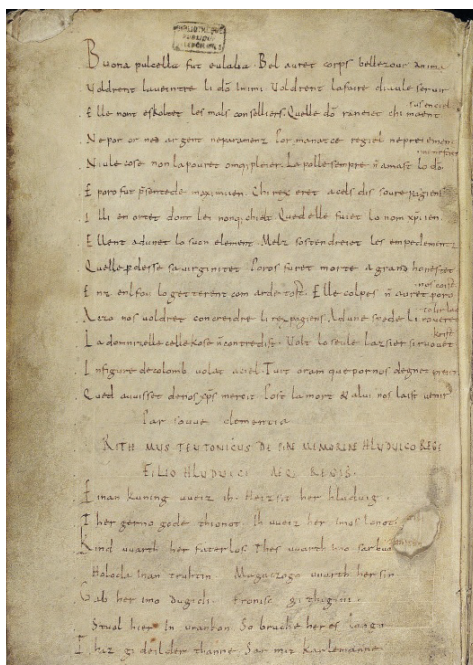 Buona pulcella fut eulalia. Bel auret corps bellezour anima
Voldrent la ueintre li dõ Inimi. Voldrent la faire diaule seruir
Elle nont eskoltet les mals conselliers. Quelle dõ raneiet chi maent
sus en ciel
Ne por or ned argent ne paramenz. Por manatce regiel ne preiemen
Niule cose non la pouret omq; pleier. La polle sempre ñ amast lo dõ
menestier
E poro fut p̃sentede maximiien. Chi rex eret a cels dis soure pagiens
Il li en ortet dont lei nonq; chielt. Qued elle fuiet lo nom xp̃iien.
Ellent adunet lo suon element. Melz sostendreiet les empedementz
Quelle perdesse sa uirginitet. Poros furet morte a grand honestet
Enz enl fou lo getterent com arde tost. Elle colpes ñ auret poro
nos coist
Aczo nos voldret concreidre li rex pagiens. Ad une spede li roueret
tolir lo
La domnizelle celle kose ñ contredist. Volt lo seule lazsier si ruouet
krist
In figure de colomb volat a ciel. Tuit oram que por nos degnet preier
Qued auuisset de nos xp̃s mercit. Post la mort & a lui nos laist uenir
Par souue clementia
RITHMUS TEUTONICUS DE PIAE MEMORIAE HLUDUICO REGE
FILIO HLUDUICI AEQ; REGIS.
Einan kuning uueiz ih. Heizsit her hluduig.
Ther gerno gode thionot. Ih uueiz her imos lonot.
Kind uuarth her faterlos. Thes uuarth imo sar buoz
Holoda inan truhtin. Magaczogo uuarth her sin
Gab her imo dugidi. Fronisc githigini.
Stual hier In urankon. So bruche her es lango.
Thaz gideilder thanne. Sar mit karlemanne.